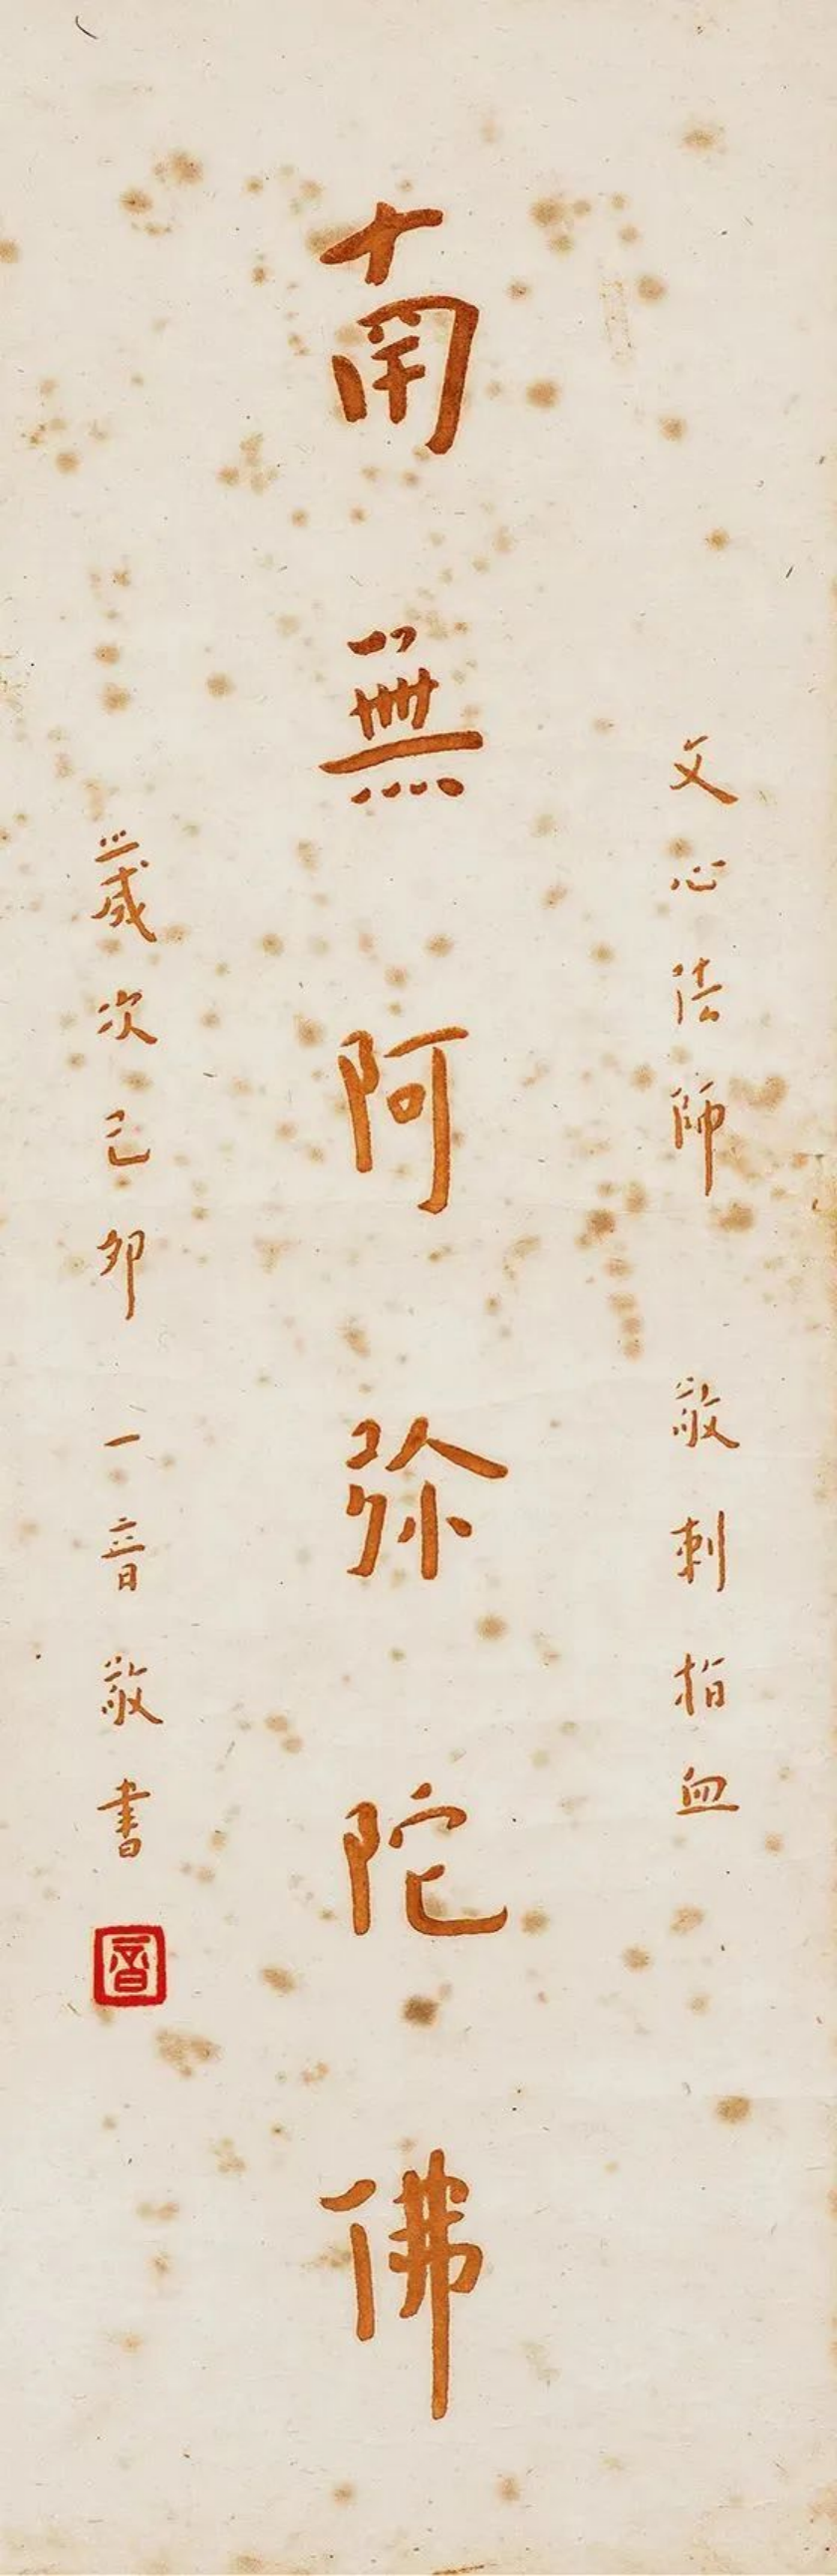 文心法師 敬刺指血
南無阿弥陀佛
歲次己卯 一音敬書
音